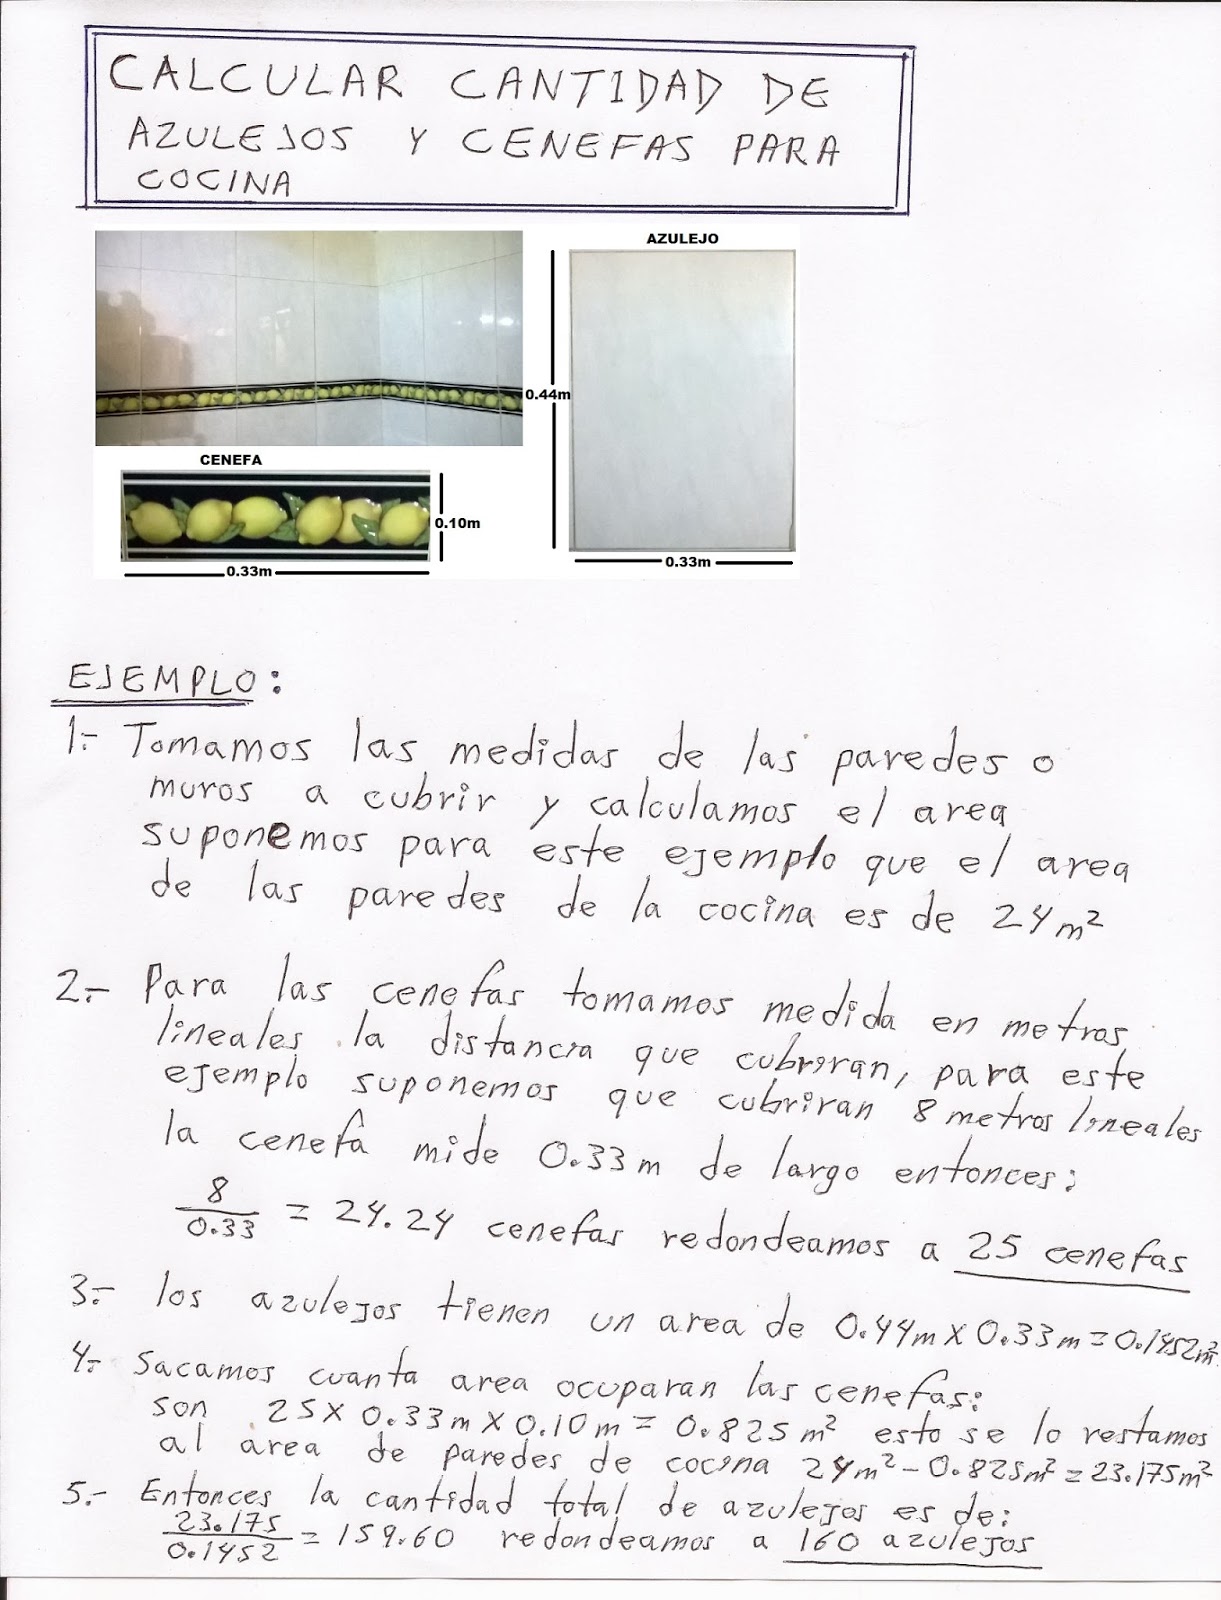 CALCULAR CANTIDAD DE
AZULEJOS Y CENEFAS PARA
COCINA
AZULEJO
0.44m
CENEFA
0.10m
0.33m
0.33m
EJEMPLO:
1.- Tomamos las medidas de las paredes o
muros a cubrir y calculamos el area
suponemos para este ejemplo que el area
de las paredes de la cocina es de 24m²
2.- Para las cenefas tomamos medida en metros
lineales la distancia que cubriran, para este
ejemplo suponemos que cubriran 8 metros lineales
la cenefa mide 0.33m de largo entonces;
8/0.33 = 24.24 cenefas redondeamos a 25 cenefas
3.- los azulejos tienen un area de 0.44m X 0.33m = 0.1452m²
4.- Sacamos cuanta area ocuparan las cenefas:
son 25 X 0.33m X 0.10m = 0.825m² esto se lo restamos
al area de paredes de cocina 24m² - 0.825m² = 23.175m²
5.- Entonces la cantidad total de azulejos es de:
23.175/0.1452 = 159.60 redondeamos a 160 azulejos